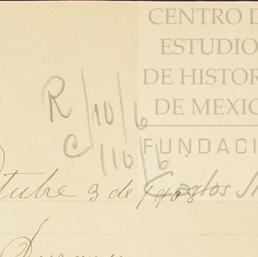 CENTRO D
ESTUDIO
DE HISTOR
DE MEXIC
FUNDACI
R/10/6
C/110/6
ctubre 3 de 1908